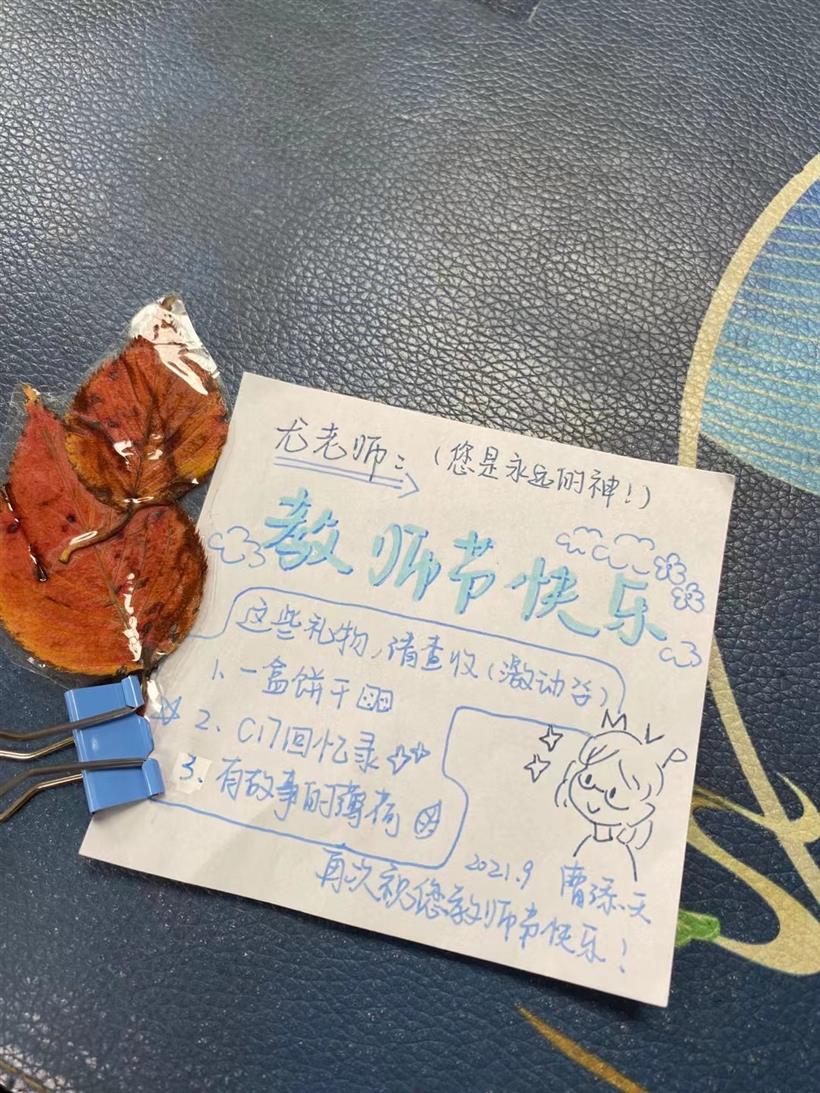 尤老师：（您是永远的神！）
教师节快乐
这些礼物，请查收（激动
1、一盒饼干
2、C17回忆录
3、有故事的薄荷
2021.9 曹添天
再次祝您教师节快乐！